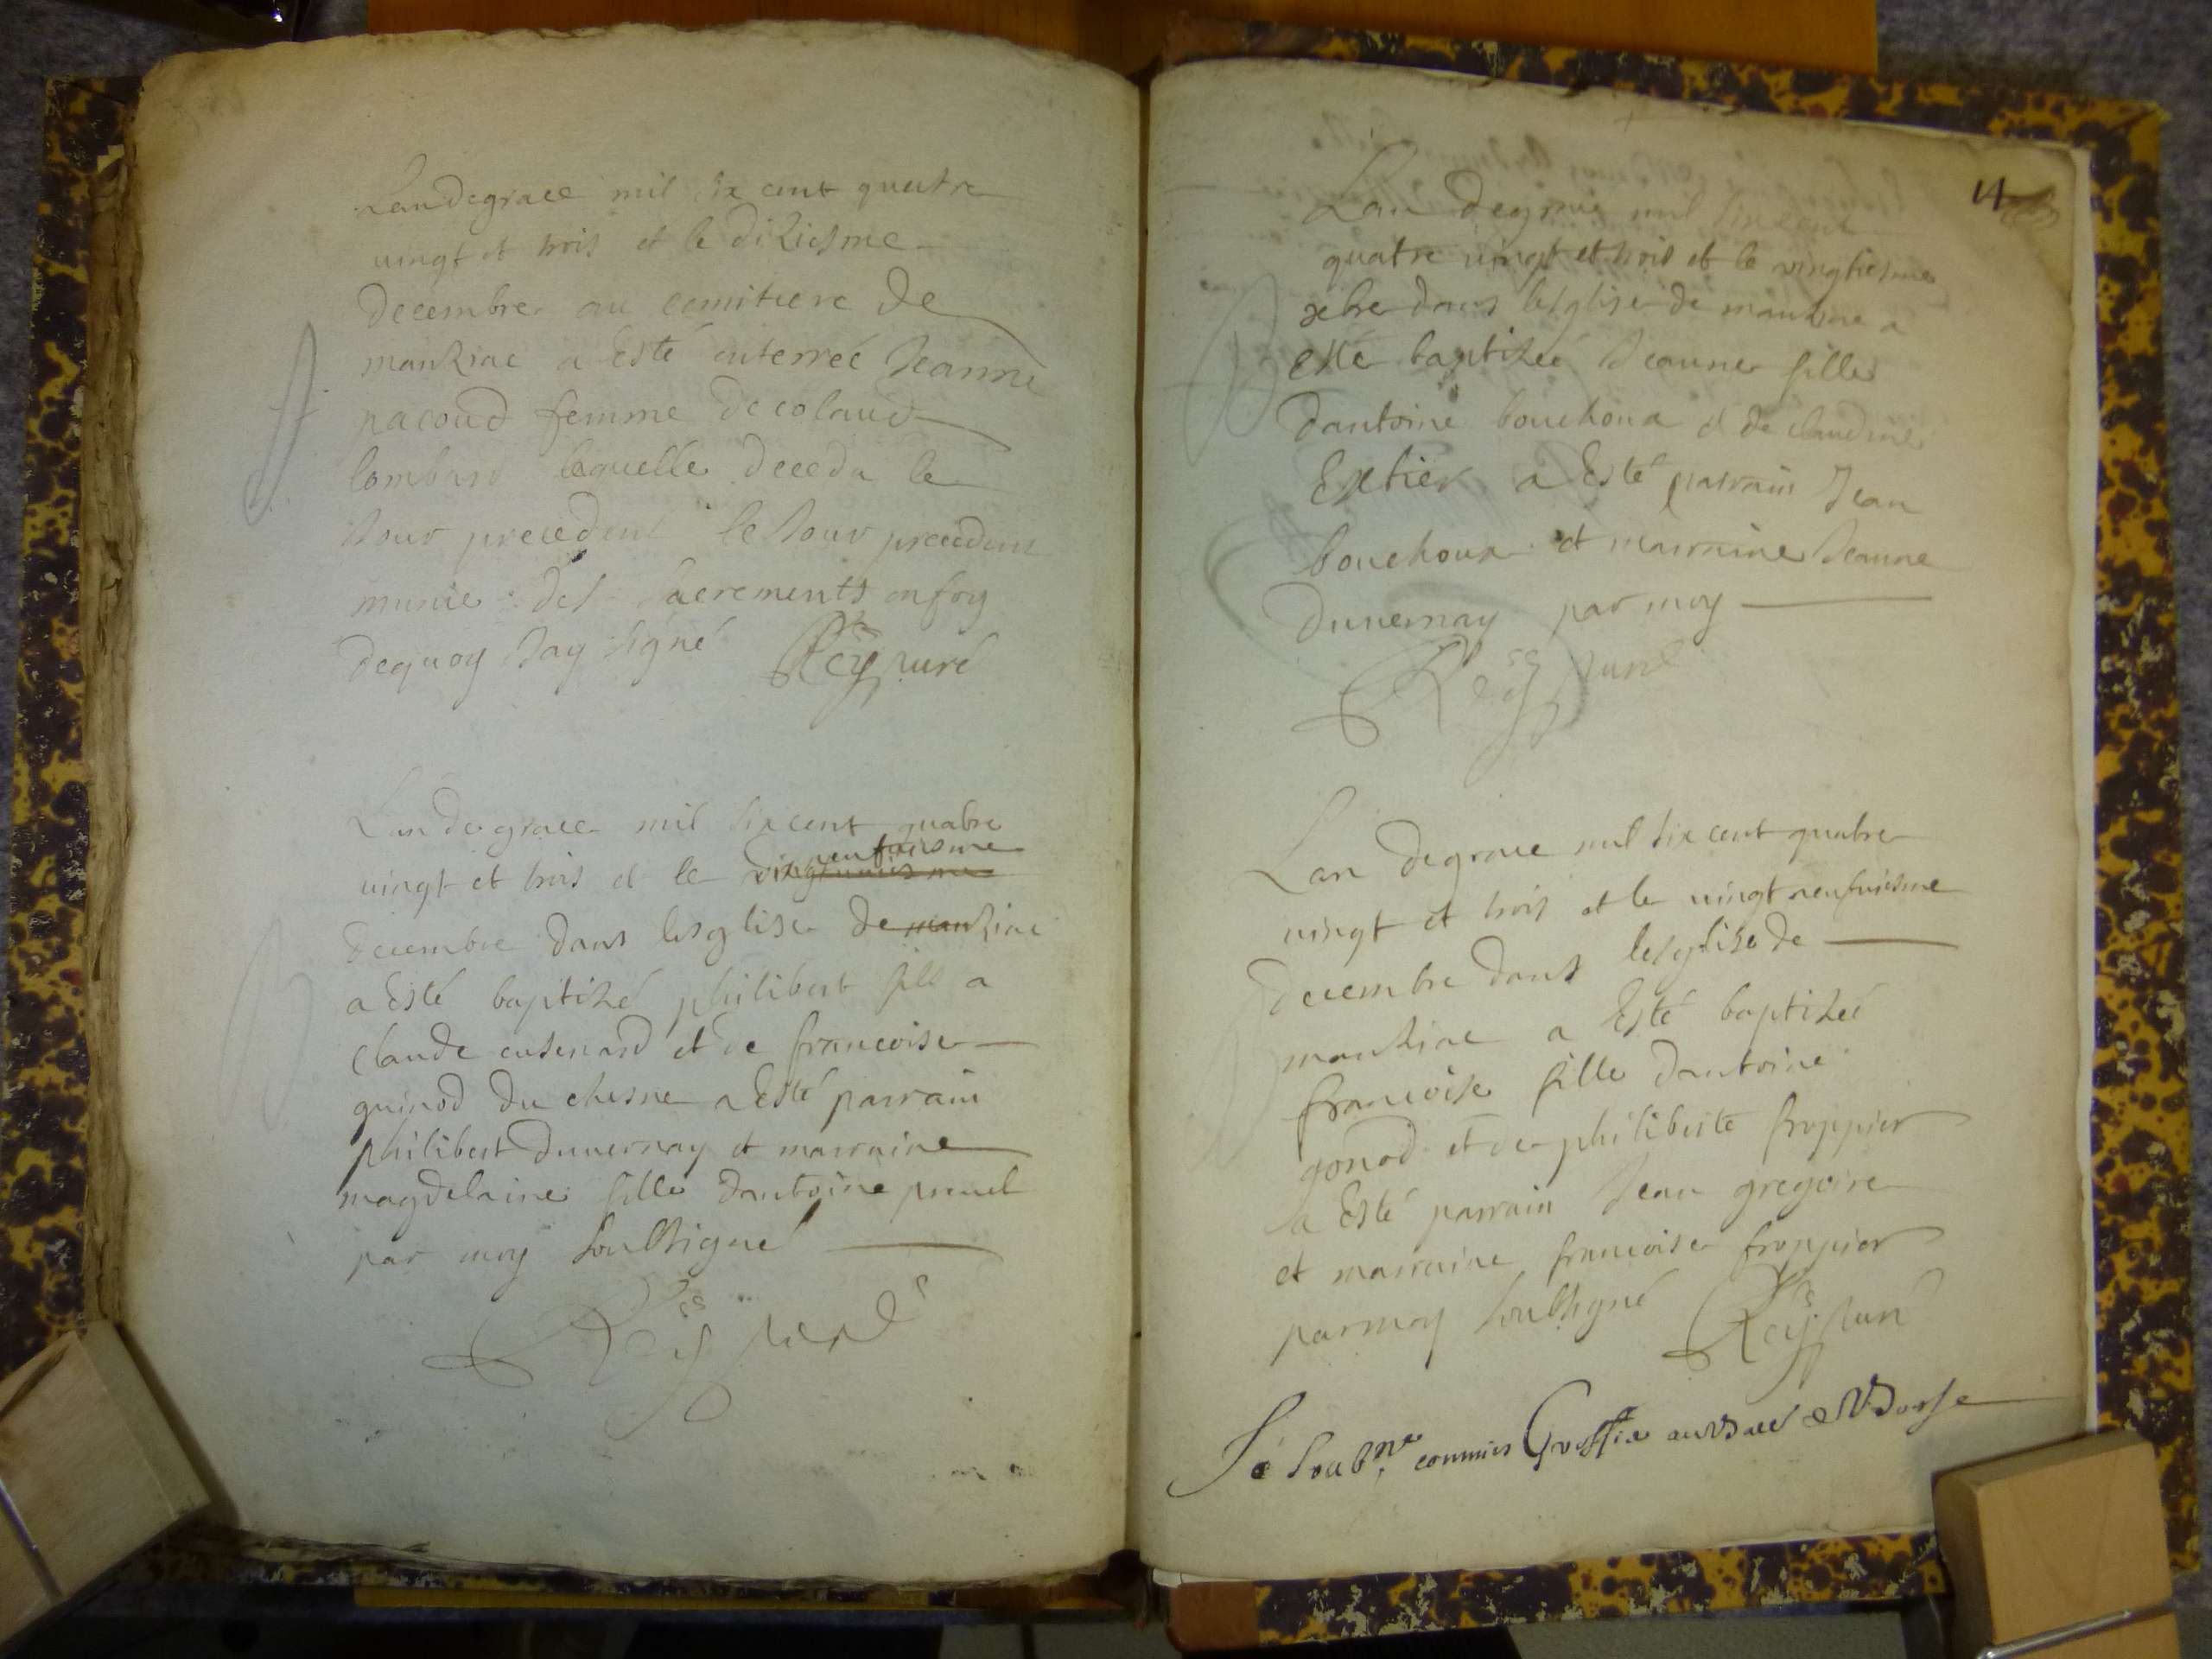 Lan de grace mil six cent quatre
vingt et trois et le diziesme
decembre au cemitiere de
manziac a esté enterreé Jeanne
pacoud femme de colaud
lombard laquelle deceda le
Jour precedent le Jour precedent
munie des sacrements en foy
dequoy Jay signé Reÿ curé
Lan de grace mil six cent quatre
neufuiesme
vingt et trois et le
decembre dans lesglise de manziac
a esté baptizé philibert fils a
claude cusenard et de francoise
guinod du chesne a esté parrain
philibert duuernay et marraine
magdelaine fille dantoine pruuel
par moy soubsigné
Reÿ curé
11
Lan de grace mil six cent
quatre vingt et trois et le vingtiesme
xbre dans lesglise de manziac a
esté baptizeé Jeanne fille
dantoine bouchoux et de claudine
Extier a esté parrain Jean
bouchoux et marraine Jeanne
duuernay par moy
Reÿ curé
Lan de grace mil six cent quatre
vingt et trois et le vingt neufuiesme
decembre dans lesglise de
manziac a esté baptizeé
francoise fille dantoine
gonod et de philiberte froppier
a esté parrain Jean gregoire
et marraine francoise froppier
par moy soubsigné Reÿ curé
commis Greffie